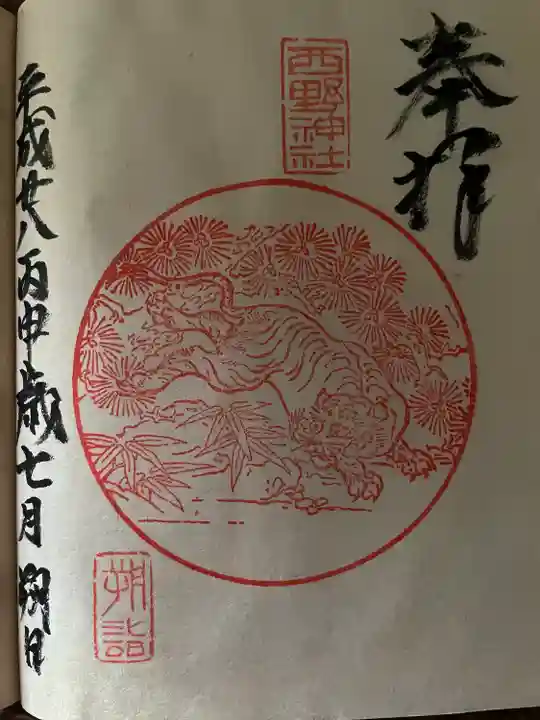 奉拝
西野神社
朔詣
平成廿八丙申歳七月朔日